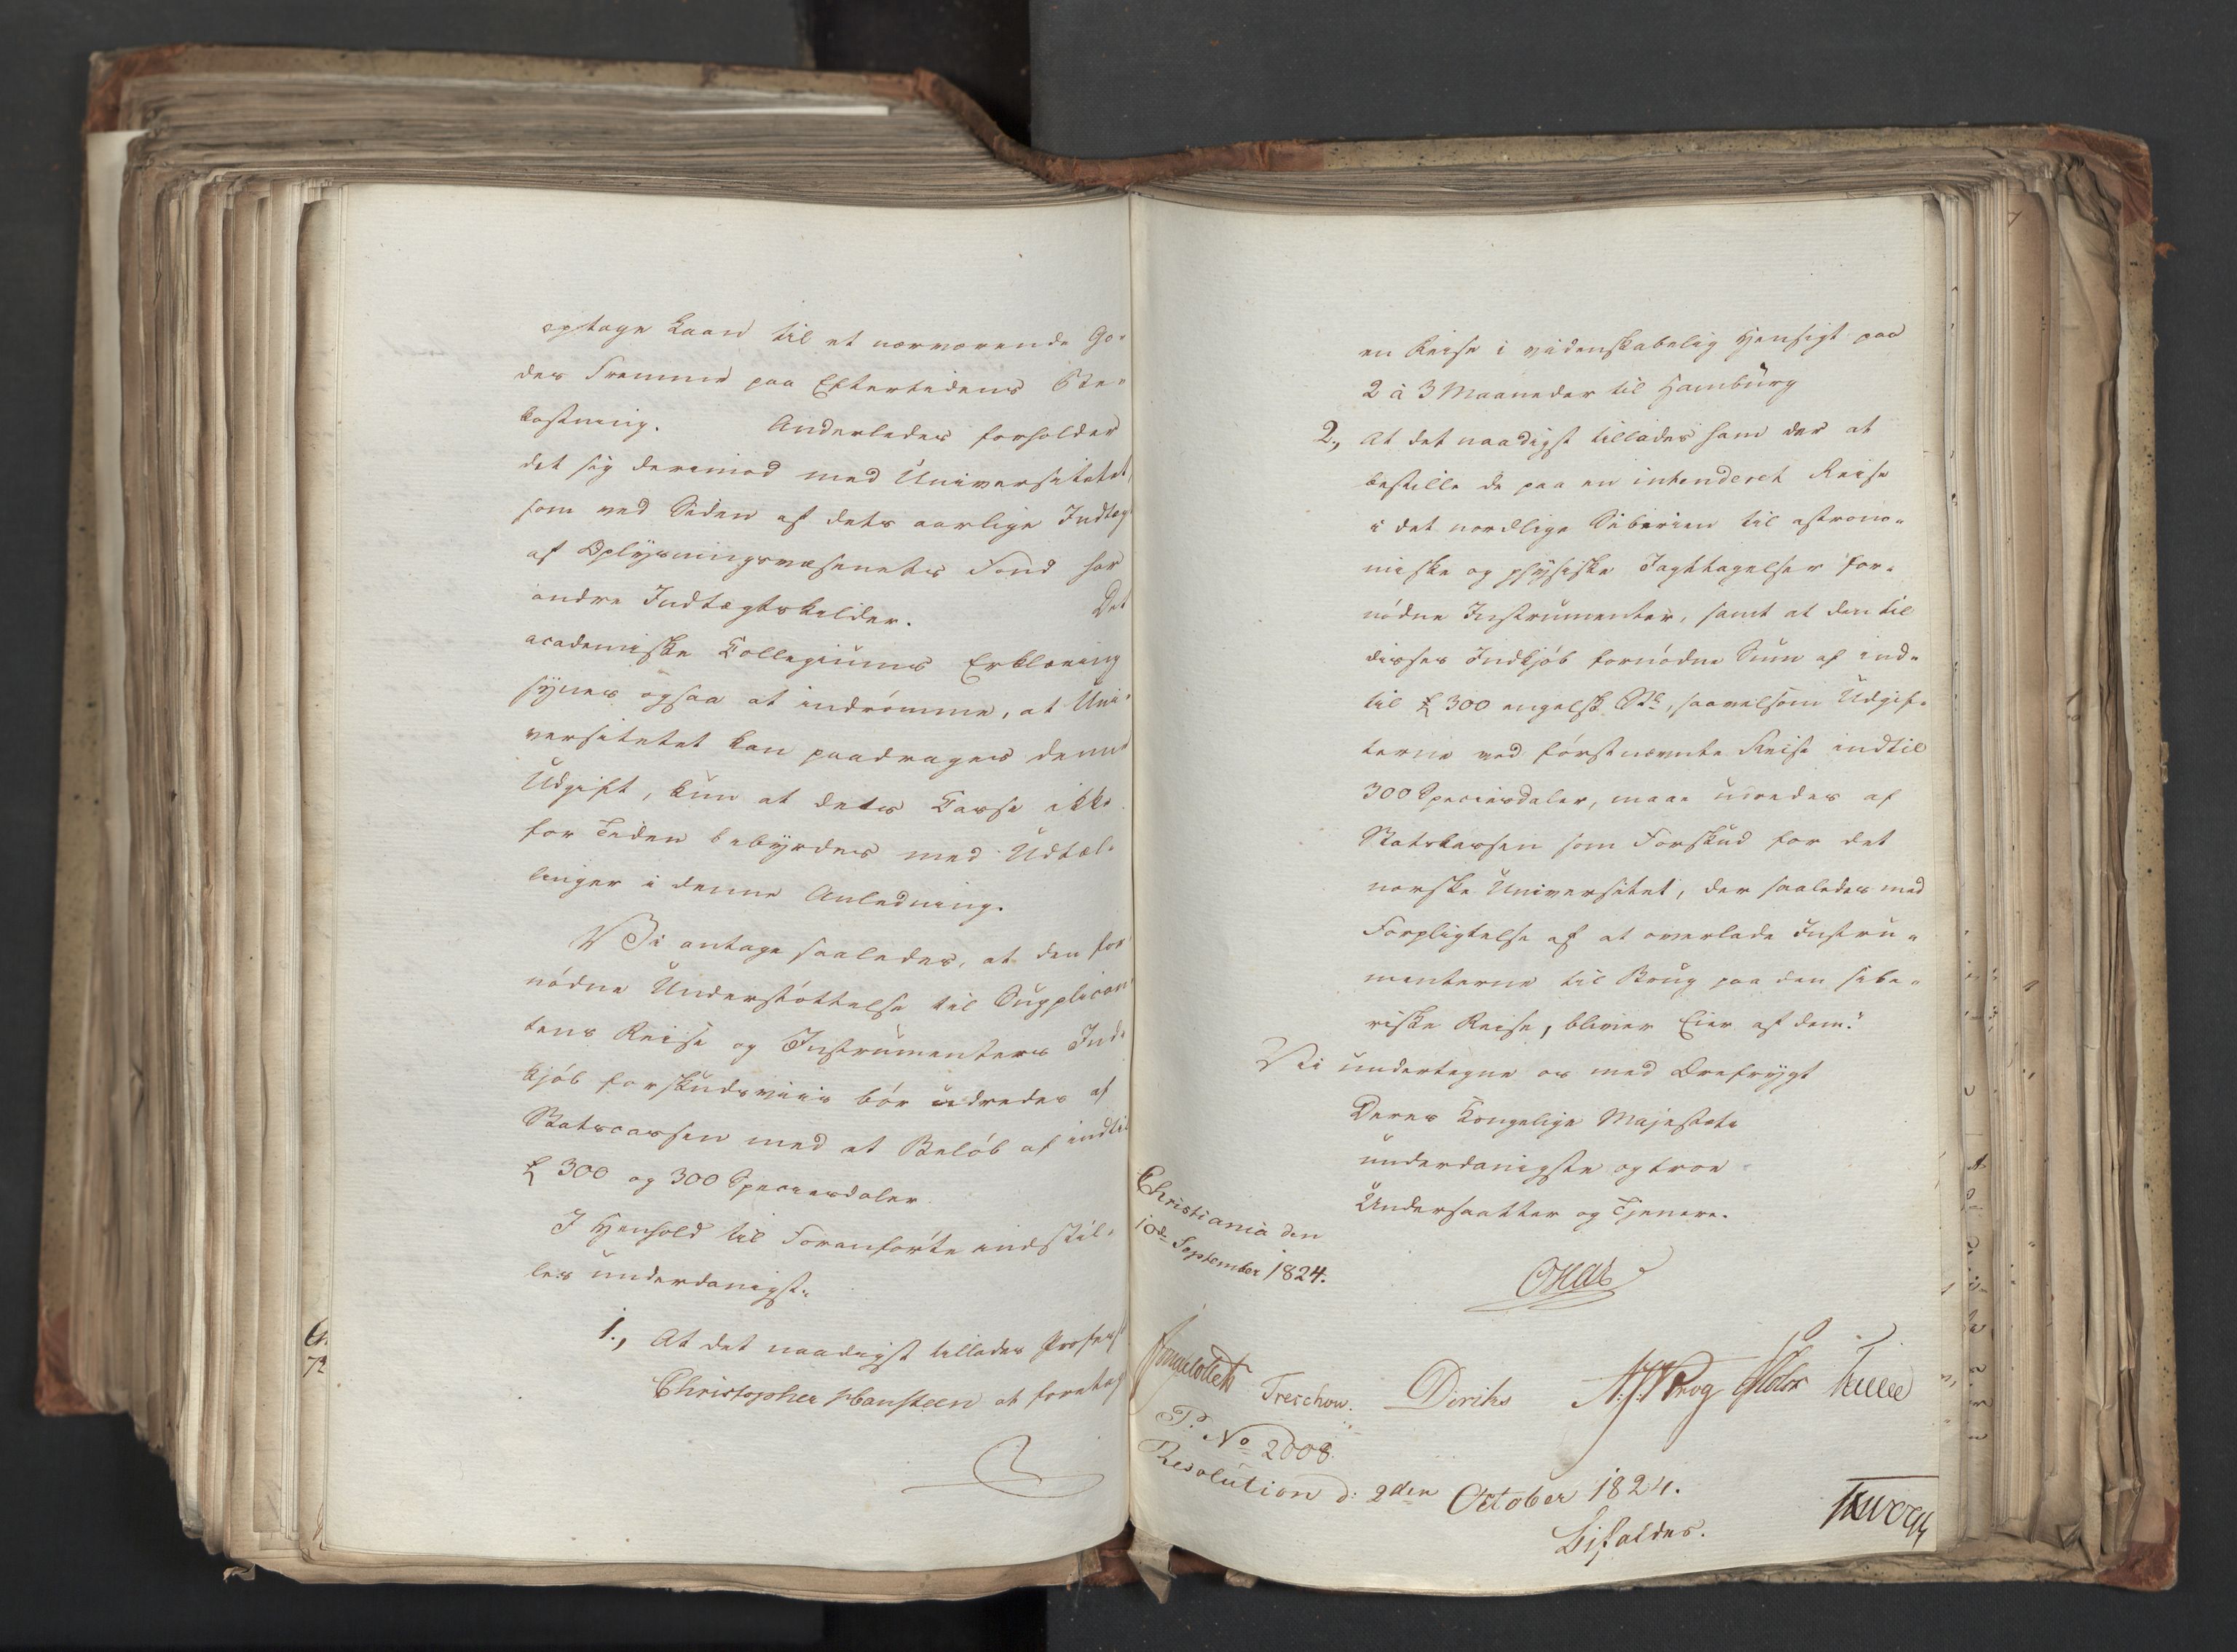 optage Laan til et nærværende Go-
des Fremme paa Eftertidens Be-
kostning. Anderledes forholder
det sig derimod med Universitetet
som ved Siden af dets aarlige Indtægt
af Oplysningsvæsenets Fond har
andre Indtægtskilder. Det
academiske Collegiums Erklæring
synes ogsaa at indrømme, at Uni-
versitetet kan paadrages denne
Udgift, kun at dets Casse ikke
for Tiden bebyrdes med Udtæl-
linger i denne Anledning.
Vi antage saaledes, at den for-
nødne Understøttelse til Supplican-
tens Reise og Instrumenters Ind-
kjøb forskudsviis bør udredes af
Statscassen med et Beløb af indtil
£ 300 og 300 Speciesdaler
I Henhold til Foranførte indstil-
les underdanigst:
1., At det naadigst tillades Profess
Christopher Hansteen at foretag
en Reise i videnskabelig Hensigt paa
2 à 3 Maaneder til Hamburg
2., At det naadigst tillades ham der at
bestille de paa en intenderet Reise
i det nordlige Siberien til astrono-
miske og physiske Iagttagelser for-
nødne Instrumenter, samt at den til
disses Indkjøb fornødne Sum af ind-
til £ 300 engelsk, saavelsom Udgif-
terne ved førstnævnte Reise indtil
300 Speciesdaler, maae udredes af
Statskassen som Forskud for det
norske Universitet, der saaledes med
Forpligtelse af at overlade Instru-
menterne til Brug paa den sibe-
riske Reise, bliver Eier af dem."
Vi undertegne os med Ærefrygt
Deres Kongelige Majestæts
underdanigste og troe
Undersaatter og Tjenere.
Christiania den
10de September 1824.
Treschow. Diriks Krog
P. No 2008.
Resolution d: 2den October 1824.
Bifaldes.